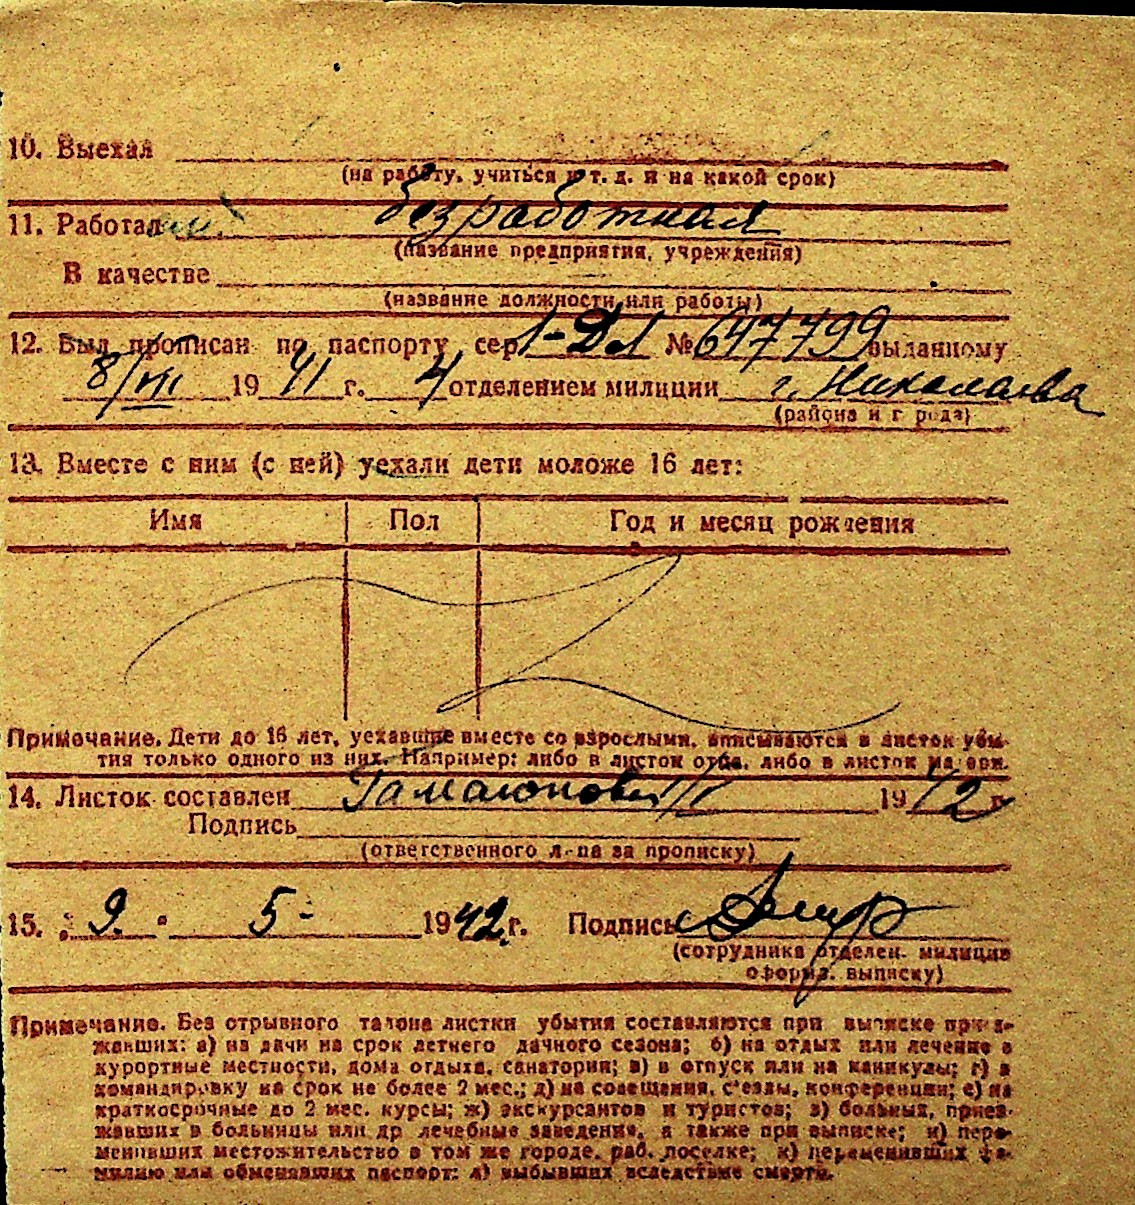 10. Выехал
(на работу, учиться и т. д. и на какой срок)
11. Работал безработная
(название предприятия, учреждения)
В качестве
(название должности или работы)
12. Был прописан по паспорту сер № 647799 выданному
8/VIII 1941 г. 4 отделением милиции г. Николаева
(района и города)
13. Вместе с ним (с ней) уехали дети моложе 16 лет:
Имя Пол Год и месяц рождения
Примечание. Дети до 16 лет, уехавшие вместе со взрослыми, вписываются в листок убы-
тия только одного из них. Например: либо в листок отца, либо в листок матери.
14. Листок составлен 1942 г.
Подпись
(ответственного лица за прописку)
15. „9“ 5- 1942 г. Подпись
(сотрудника отделен. милиции
оформ. выписку)
Примечание. Без отрывного талона листки убытия составляются при выписке приез-
жавших: а) на дачи на срок летнего дачного сезона; б) на отдых или лечение в
курортные местности, дома отдыха, санатории; в) в отпуск или на каникулы; г) в
командировку на срок не более 2 мес.; д) на совещания, с'езды, конференции; е) на
краткосрочные до 2 мес. курсы; ж) экскурсантов и туристов; з) больных, приез-
жавших в больницы или др лечебные заведения, а также при выписке; и) пере-
менивших местожительство в том же городе, раб. поселке; к) переменивших фа-
милию или обменявших паспорт: л) выбывших вследствие смерти.